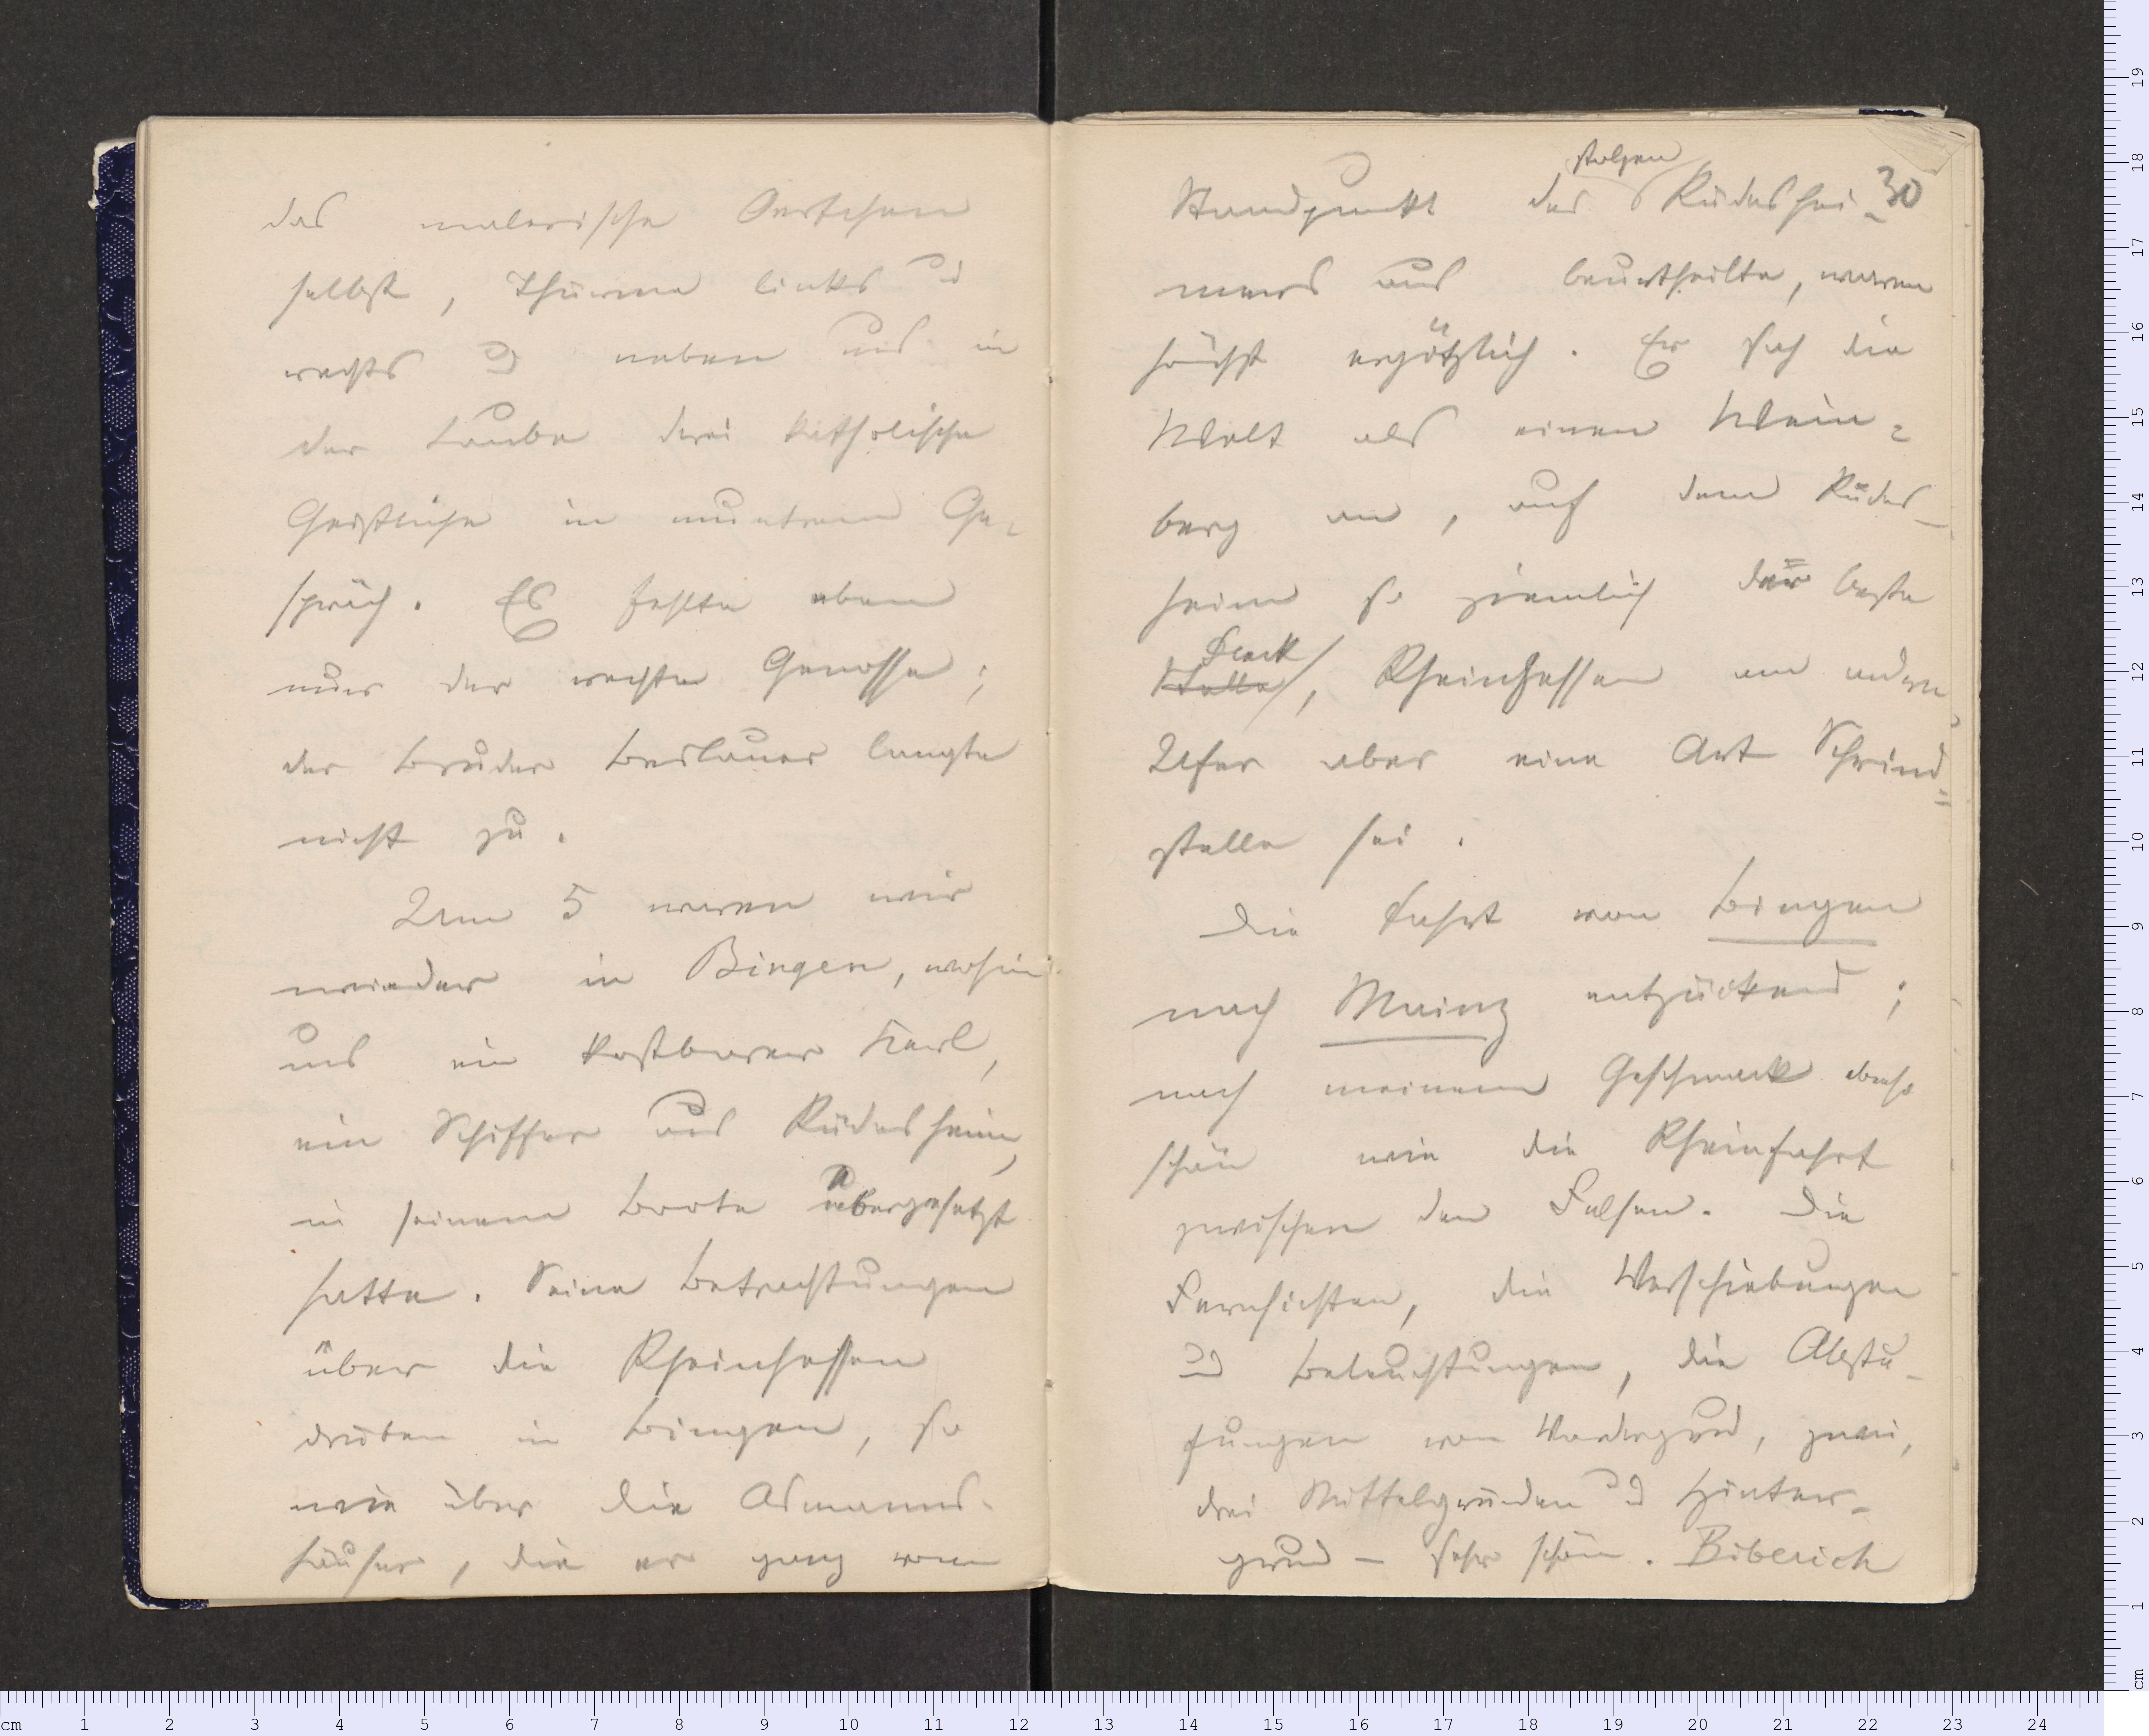 das malerische Oertchen
selbst, Thürme links u
rechts u neben uns in
der Laube drei katholische
Geistliche in muntrem Ge-
spräch. Es fehlte eben
nur der rechte Genosse;
der Bruder Breslauer langte
nicht zu.
Um 5 waren wir
wieder in Bingen, wohin
uns ein kostbarer Kerl,
ein Schiffer aus Rüdesheim,
in seinem Boote übergesetzt
hatte. Seine Betrachtungen
über die Rheinhessen
drüben in Bingen, so
wie über die Asmanns-
häuser, die er ganz vom
30
stolzen
Standpunkt des Rüdeshei-
mers aus beurtheilte, waren
höchst ergötzlich. Er sah die
Welt als einen Wein-
berg an, auf dem Rüdes-
heim so ziemlich der beste
Fleck
Stelle, Rheinhessen am andern
Ufer aber eine Art Schind-
stelle sei.
Die Fahrt von Bingen
nach Mainz entzückend;
nach meinem Geschmack ebenso
schön wie die Rheinfahrt
zwischen den Felsen. Die
Fernsichten, die Verschiebungen
u Beleuchtungen, die Abstu-
fungen von Vordergrund, zwei,
drei Mittelgründen u Hinter-
grund – sehr schön. Biberich